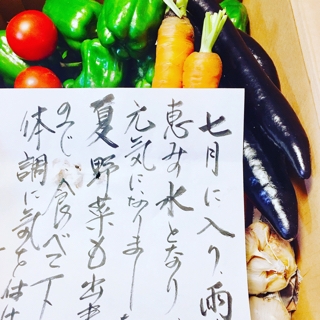 七月に入り雨
恵みの水となり
元気になりまし
夏野菜も出来
ので食べて下
体調に気を付け